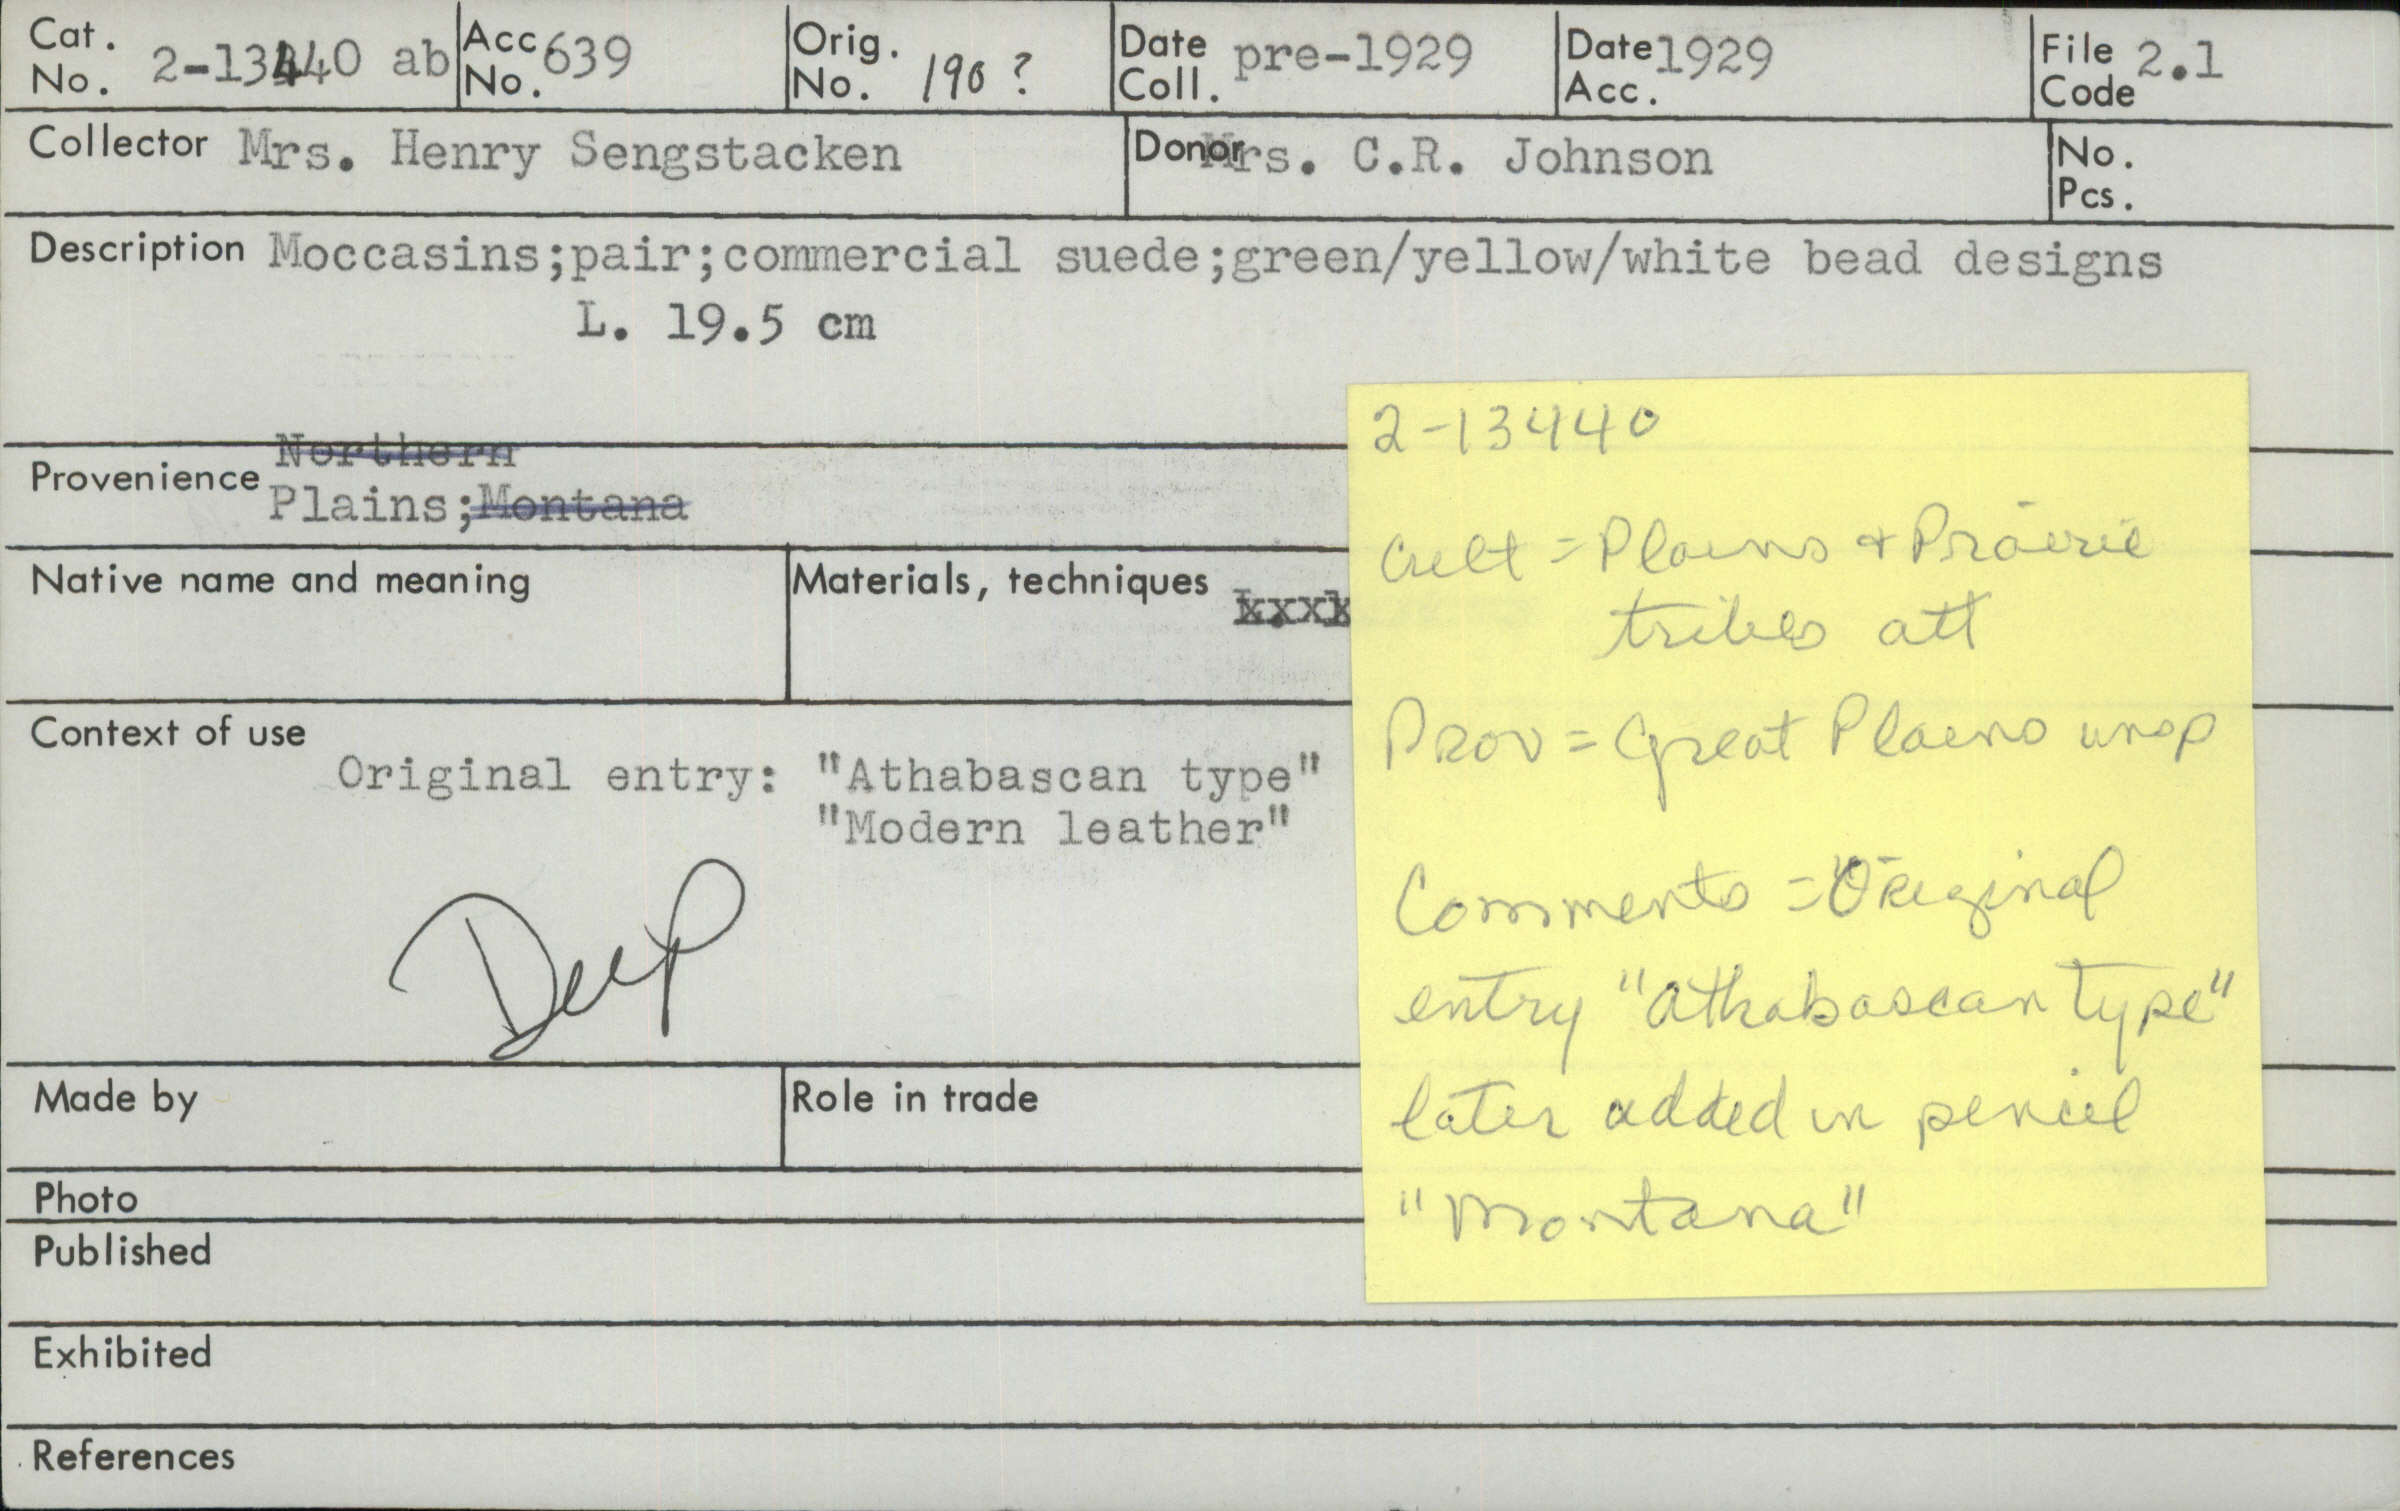 Cat. No. 2-13440 ab Acc. No. 639 Orig. No. 190? Date Coll. pre-1929 Date Acc. 1929 File Code 2.1
Collector Mrs. Henry Sengstacken Donor Mrs. C.R. Johnson No. Pcs.
Description Moccasins;pair;commercial suede;green/yellow/white bead designs
L. 19.5 cm
Northern
Provenience Plains;Montana
Native name and meaning Materials, techniques
Context of use
Original entry: "Athabascan type"
"Modern leather"
Made by Role in trade
Photo
Published
Exhibited
References
2-13440
Cult = Plains & Prairie
tribes att
Prov = Great Plains unsp
Comments = Original
entry "Athabascan type"
later added in pencil
"Montana"